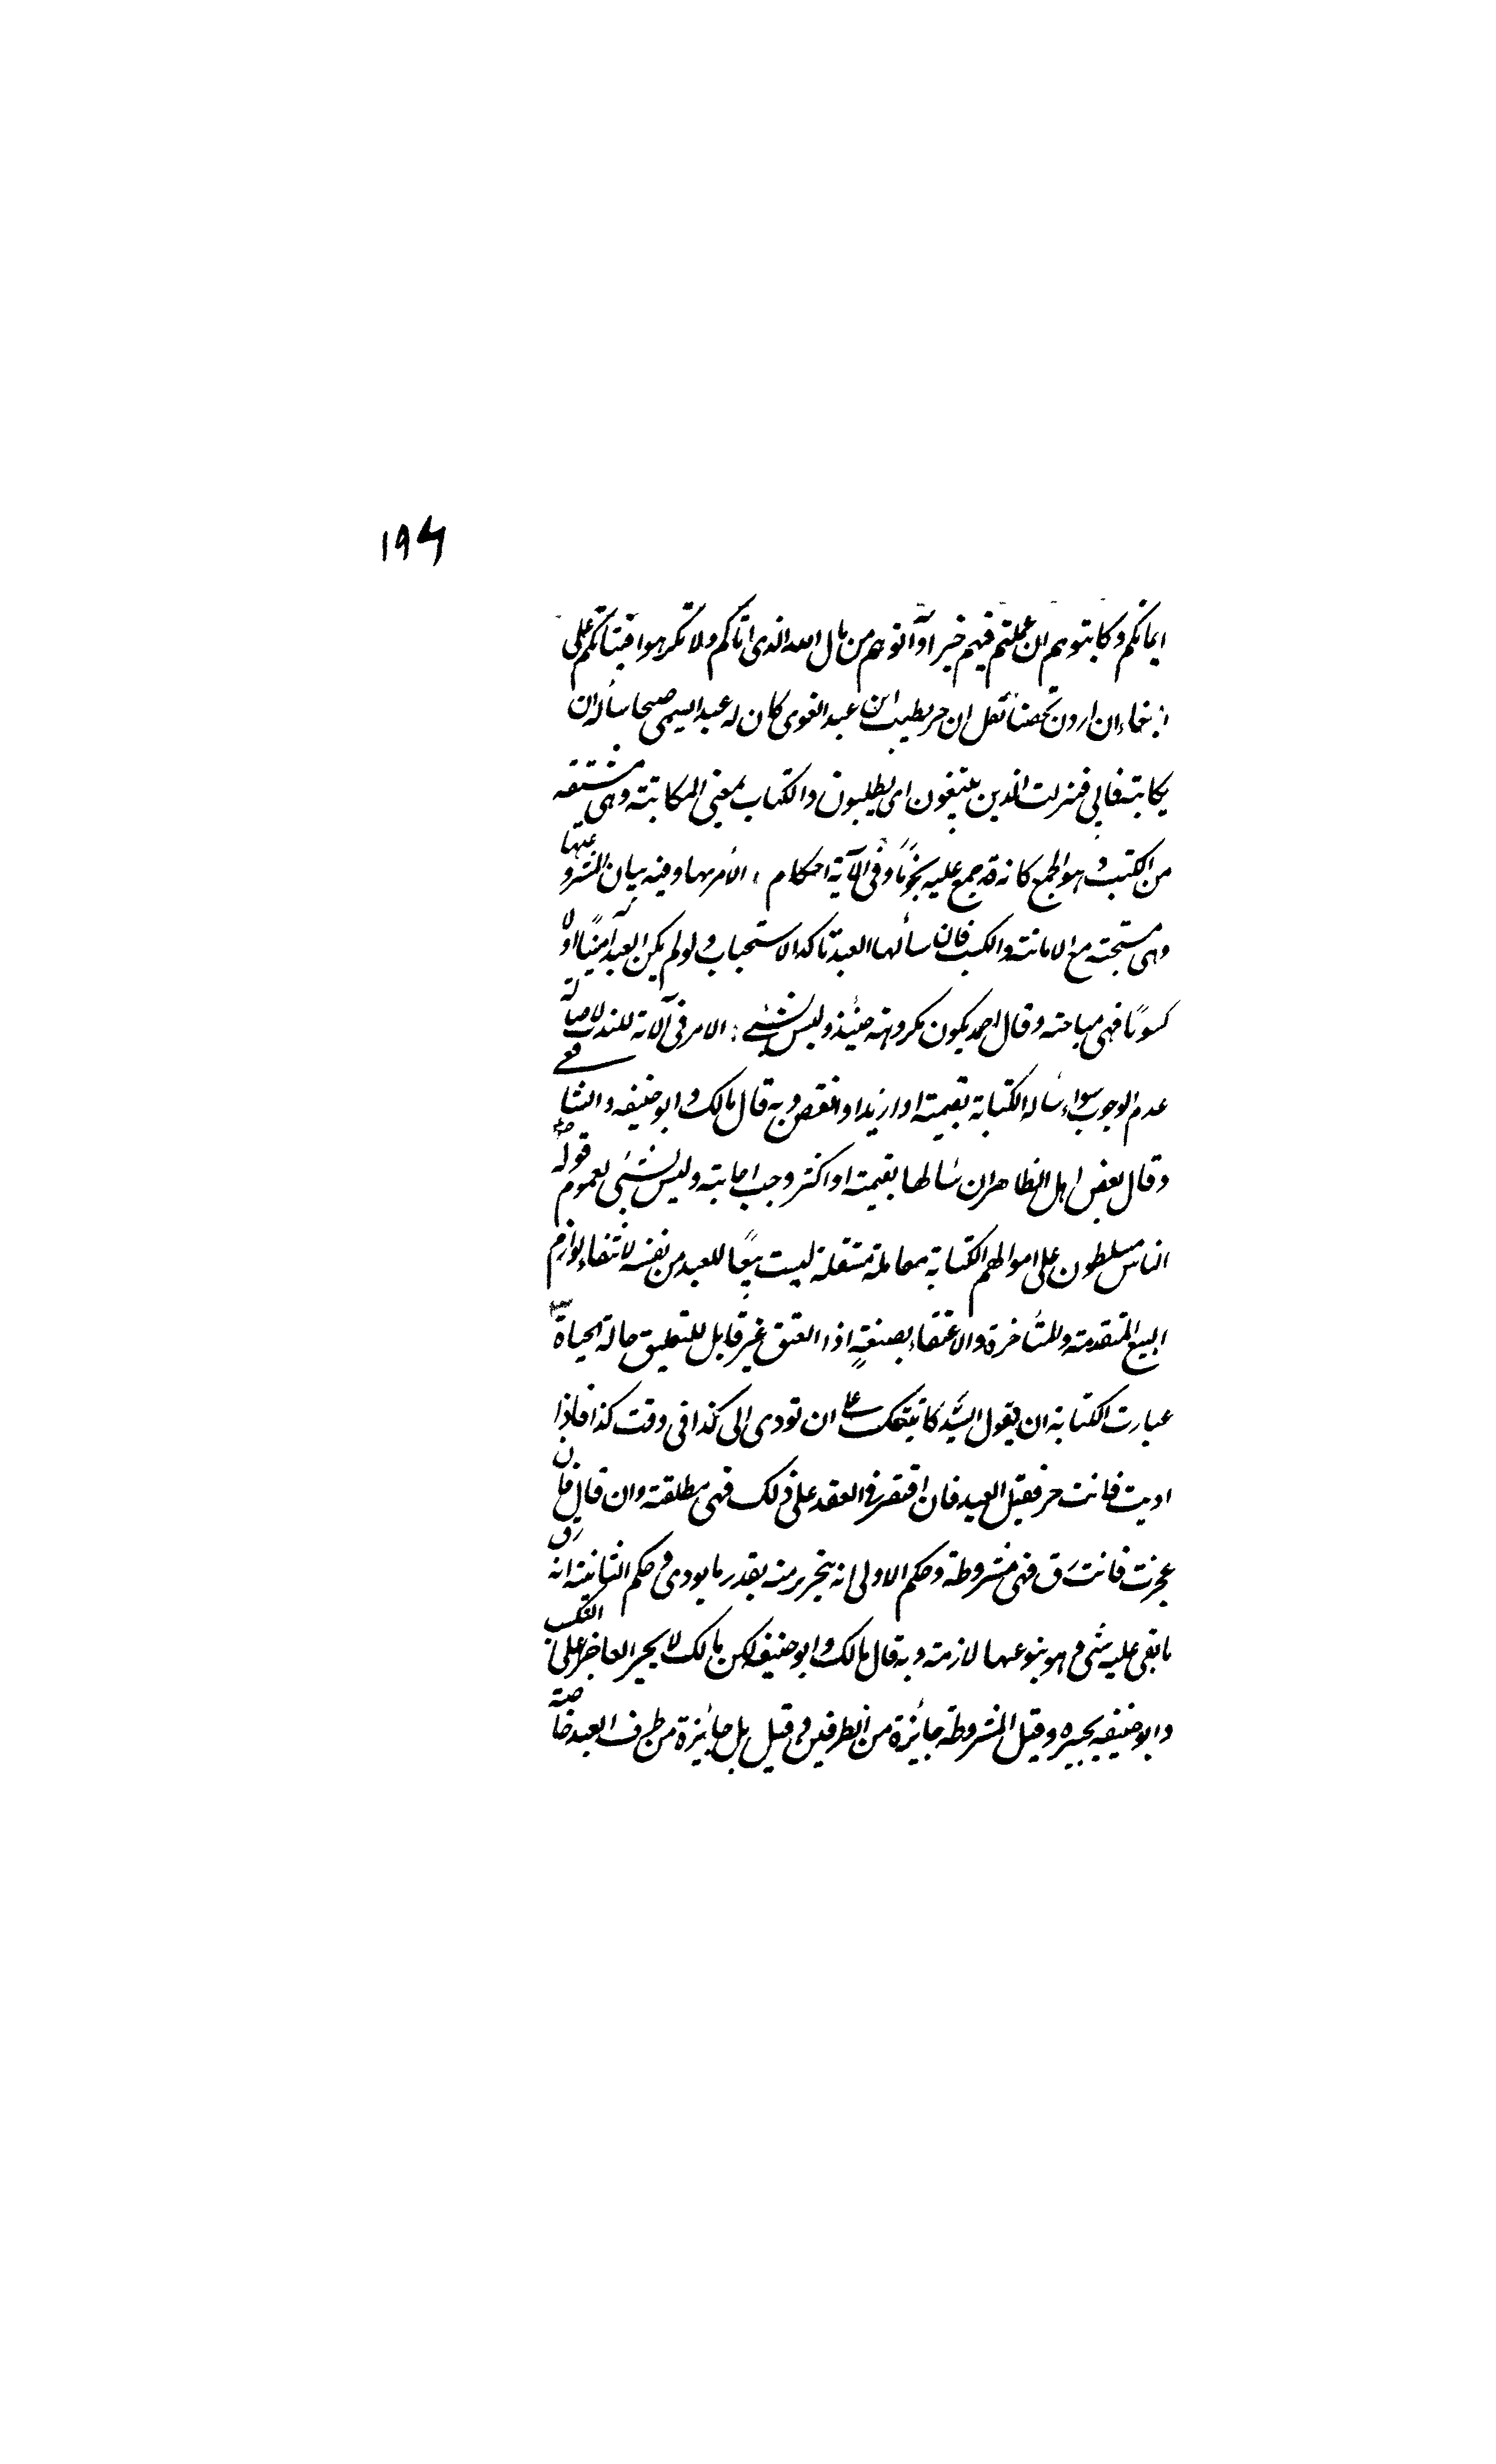 ۱۹۶
ايمانكم وكاتبوهم ان علمتم فيهم خيرا وآتوهم من مال الله الذى اتاكم ولا تكرهوا فتياتكم على
البغاء ان اردن تحصنا نقل ان حويطب ابن عبد الغوى كان له عبد اليسمى صبحا سأله ان
يكاتبه فابى فنزلت الذين يبتغون اى يطلبون والكتاب بمعنى المكاتبة وهى مشتقه
من الكتب وهو الجمع كانه جمع عليه نجومًا وفى الآية احكام ، الأمر بها وفيه بيان المشروعيتها
وهى مستحبته مع الامانته والكسب فان سألها العبد تاكد الاستحباب ولو لم يكن العبد امينًا اولا
كسوبًا فهى مباحته وقال احمد يكون مكروهة حينئذ وليس بشيئى : الامر فى آلاته للندب لاصالة
عدم الوجوب سواء سأله الكتابة بقيمته او ازيد او انقص وبه قال مالك وابو حنيفه والشافعى
وقال بعض اهل الظاهر ان سألها بقيمته او اكثر وجب اجابته وليس بشئى لعموم قوله ص
الناس مسلطون على اموالهم الكتابة معاملة مستقلة ليست بيعًا للعبد من نفسه لانتفاء لوازم
البيع المتقدمته والمتأخرة والاعتقاء بصفةٍ اذا العتق غير قابل للتعليق حالة الحياة
عبارت الكتابة ان يقول السيّد كاتبتك على ان تودى الى كذا فى وقت كذا فاذا
اديت فانت حر فقبل العبد فان اقتصر فى العقد على ذلك فهى مطلقته وان قال فان
عجزت فانت رق فهى مشروطة وحكم الاولى انه يتحرر منه بقدر ما يودى وحكم الثانيته انه رق
ما بقى عليه شئى وهو بنوعيها لازمته وبه قال مالك وابو حنيفه لكن مالك لا يجبر العاجز على التكسب
وابو حنيفيه يجبره وقيل المشروطة جائزة من الطرفين وقيل بل جائزة من طرف العبد خاصته